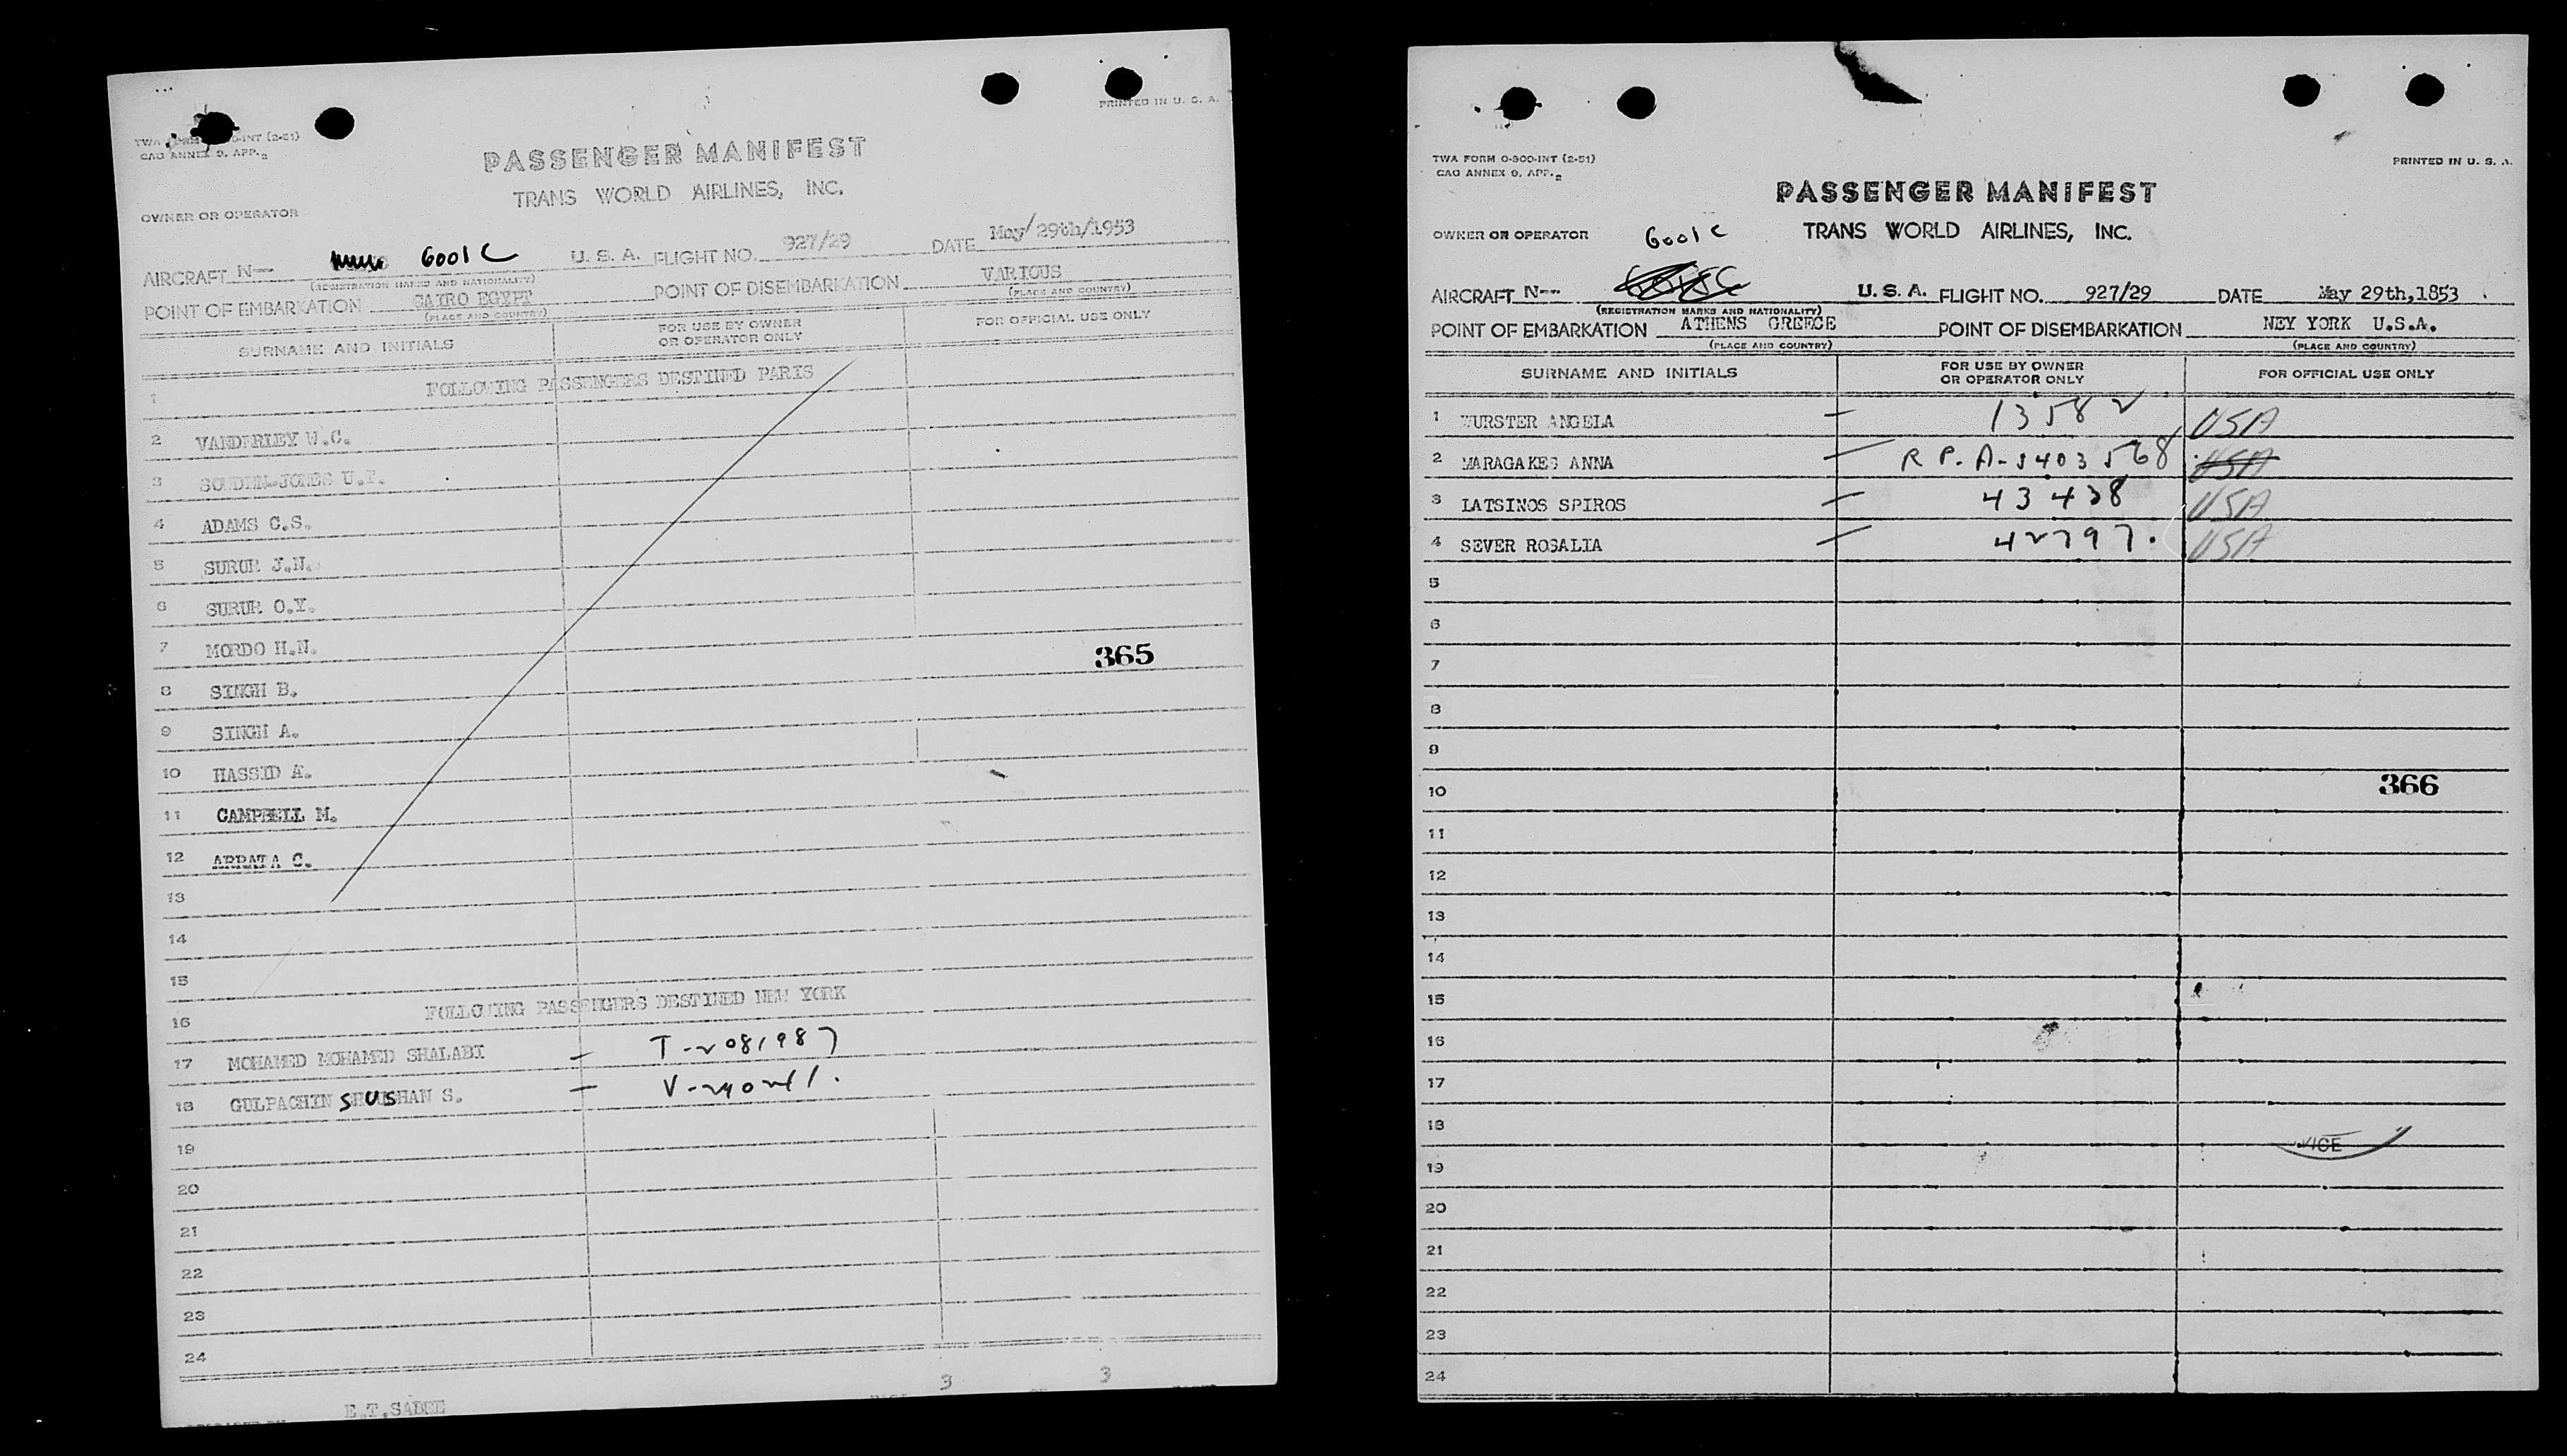 PRINTED IN U. S. A.
CAO ANNEX 9, APP. 2
PASSENGER MANIFEST
TRANS WORLD AIRLINES, INC.
OWNER OR OPERATOR
AIRCRAFT N-- 6001 C U. S. A. FLIGHT NO. 927/29 DATE May/29th/1953
(REGISTRATION MARKS AND NATIONALITY)
POINT OF EMBARKATION CAIRO EGYPT POINT OF DISEMBARKATION VARIOUS
(PLACE AND COUNTRY) (PLACE AND COUNTRY)
SURNAME AND INITIALS FOR USE BY OWNER OR OPERATOR ONLY FOR OFFICIAL USE ONLY
FOLLOWING PASSENGERS DESTINED PARIS
1
2 VANDERLEY W.C.
3
4 ADAMS C.S.
5 SURUR J.N.
6 SURUR O.Y.
7 MORDO H.N.
365
8 SINGH B.
9 SINGH A.
10 HASSID A.
11 CAMPBELL M.
12 ARRATA C.
13
14
15
FOLLOWING PASSENGERS DESTINED NEW YORK
16
17 MOHAMED MOHAMED SHALABI – T-2081987
18 GULPACHIN SHUSHAN S. –
19
20
21
22
23
24
3 3
E.T.SADEE
TWA FORM O-300-INT (2-51)
CAO ANNEX 9, APP. 2
PRINTED IN U. S. A.
PASSENGER MANIFEST
TRANS WORLD AIRLINES, INC.
OWNER OR OPERATOR 6001 C
AIRCRAFT N-- U. S. A. FLIGHT NO. 927/29 DATE May 29th,1853
(REGISTRATION MARKS AND NATIONALITY)
POINT OF EMBARKATION ATHENS GREECE POINT OF DISEMBARKATION NEY YORK U.S.A.
(PLACE AND COUNTRY) (PLACE AND COUNTRY)
SURNAME AND INITIALS FOR USE BY OWNER OR OPERATOR ONLY FOR OFFICIAL USE ONLY
1 WURSTER ANGELA – 13582 USA
2 MARAGAKES ANNA – R P. A-5403568 USA
3 LATSINOS SPIROS – 43438 USA
4 SEVER ROSALIA – 42797. USA
5
6
7
8
9
366
10
11
12
13
14
15
16
17
18
19
20
21
22
23
24